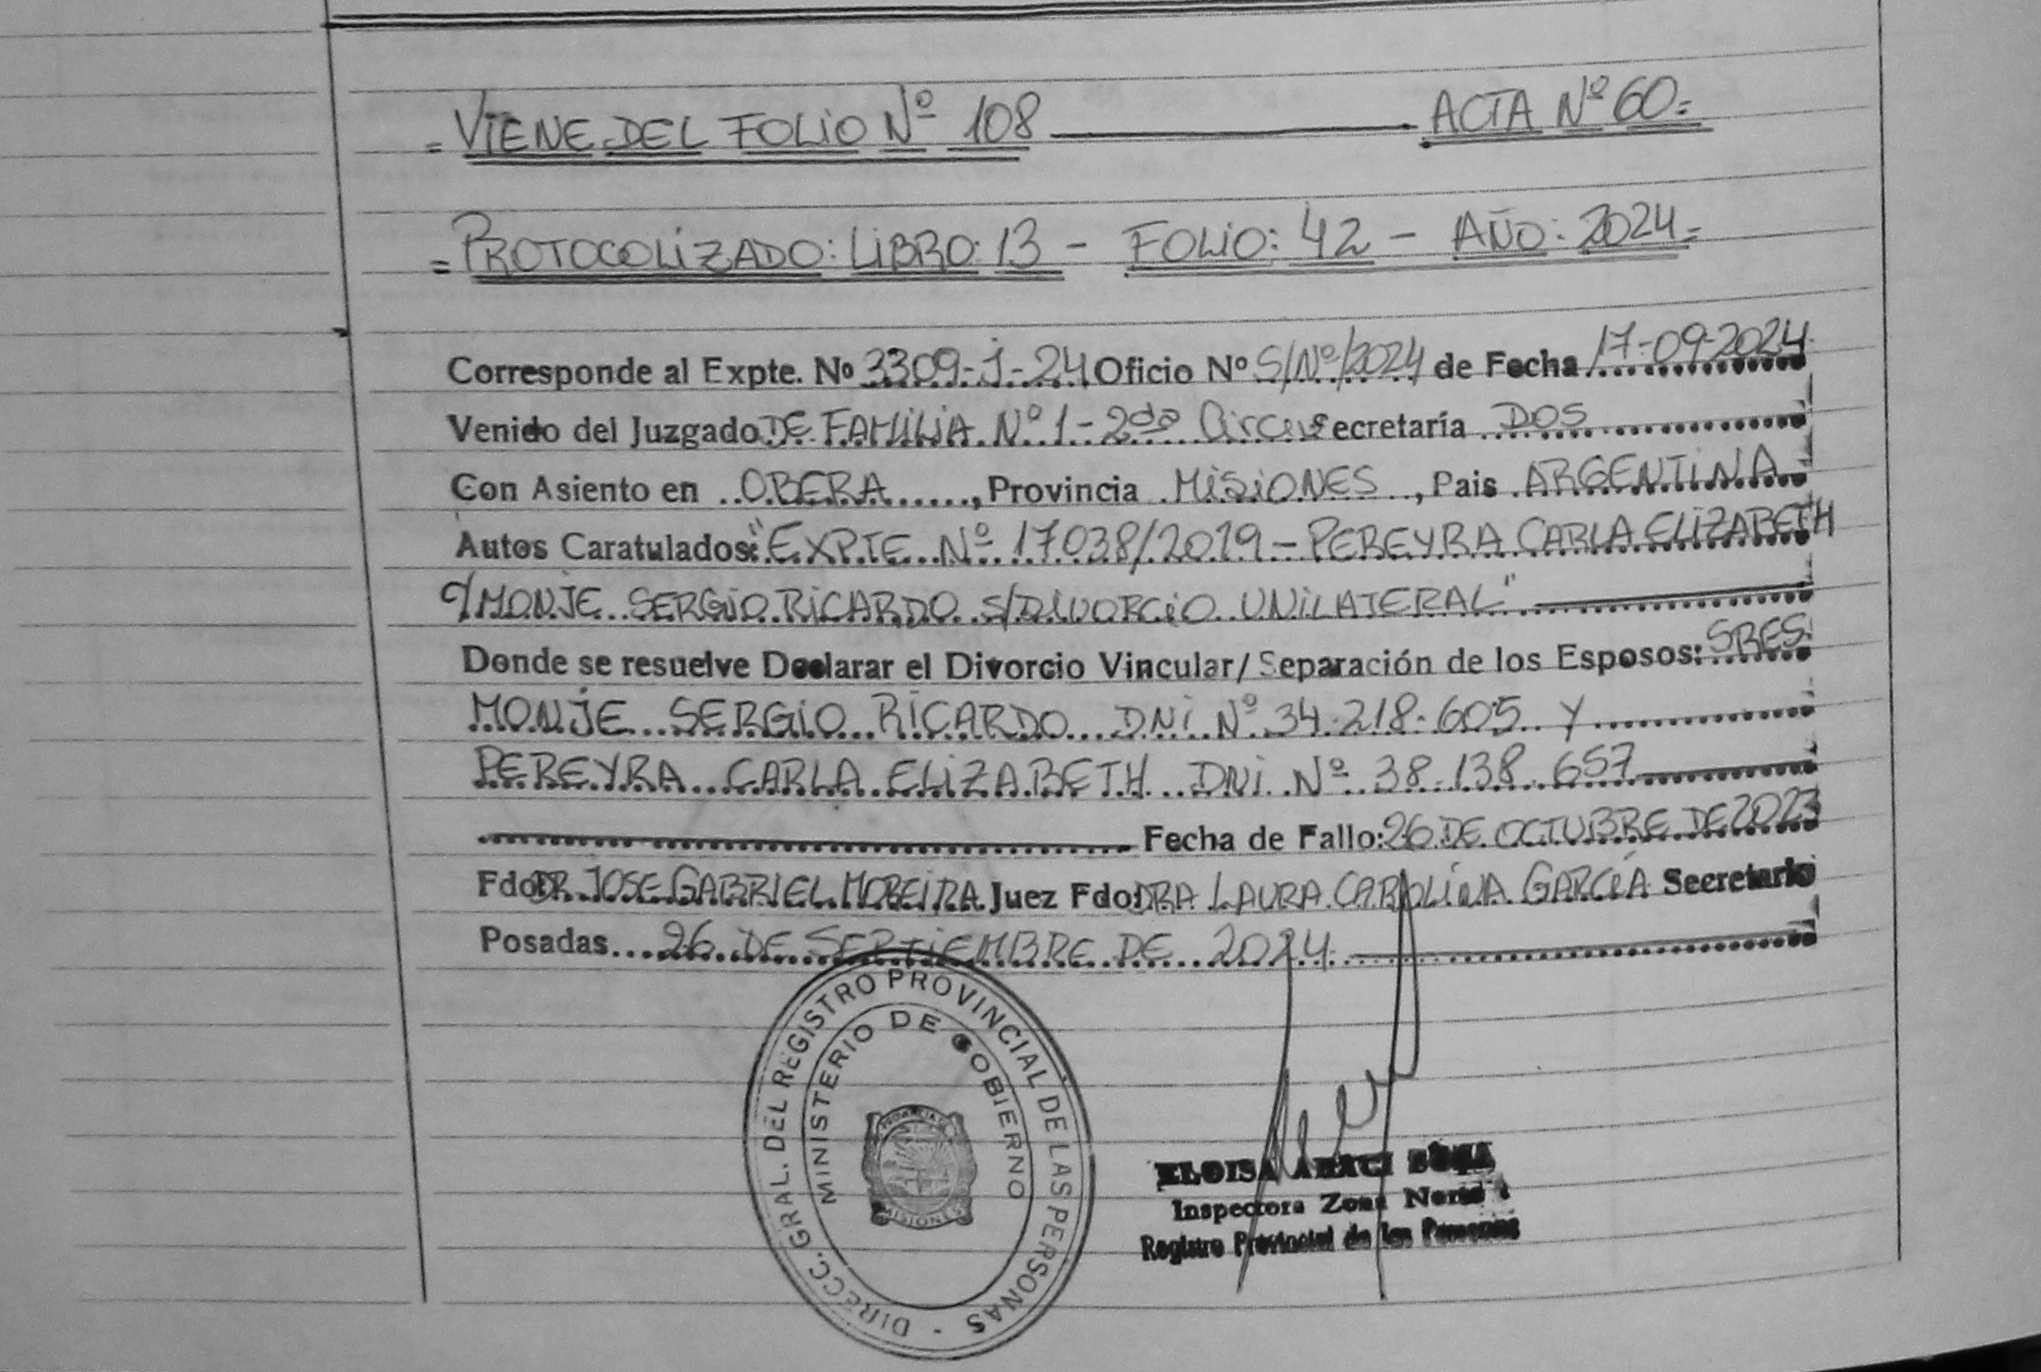 = VIENE DEL FOLIO Nº 108 ——— ACTA Nº 60 =
= PROTOCOLIZADO: LIBRO: 13 - FOLIO: 42 - AÑO: 2024 =
Corresponde al Expte. Nº 3309-J-24 Oficio Nº S/Nº/2024 de Fecha 17-09-2024
Venido del Juzgado DE FAMILIA Nº 1 - 2da Circ. Secretaría DOS
Con Asiento en OBERA, Provincia MISIONES, Pais ARGENTINA
Autos Caratulados: "EXPTE Nº 17038/2019 - PEREYRA CARLA ELIZABETH
C/ MONJE SERGIO RICARDO S/DIVORCIO UNILATERAL"
Donde se resuelve Declarar el Divorcio Vincular/Separación de los Esposos: SRES.
MONJE SERGIO RICARDO DNI Nº 34.218.605 Y
PEREYRA CARLA ELIZABETH DNI Nº 38.138.657
Fecha de Fallo: 26 DE OCTUBRE DE 2023
Fdo: DR. JOSE GABRIEL MOREIRA Juez Fdo: DRA LAURA CAROLINA GARCÍA Secretario
Posadas 26 DE SEPTIEMBRE DE 2024
DIRECC. GRAL. DEL REGISTRO PROVINCIAL DE LAS PERSONAS -
MINISTERIO DE GOBIERNO
PROVINCIA DE
MISIONES
ELOISA
Inspectora Zona Norte
Registro Provincial de las Personas